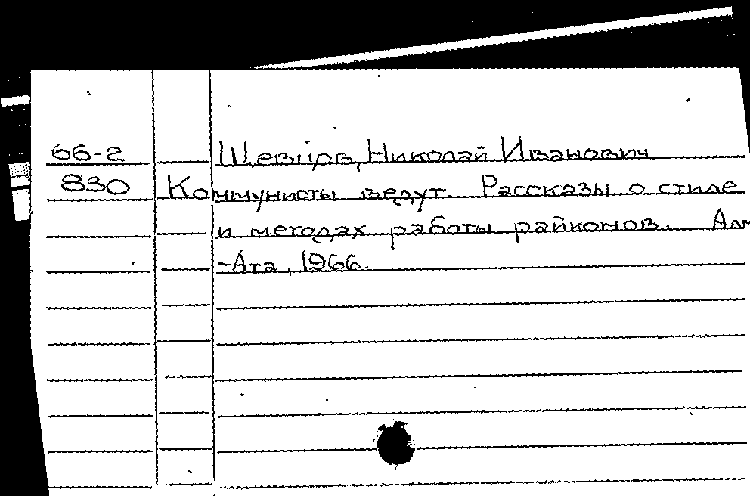 66-2 Шевцов, Николай Иванович
830 Коммунисты ведут. Рассказы о стиле
и методах работы райкомов. Алм
-Ата, 1966.